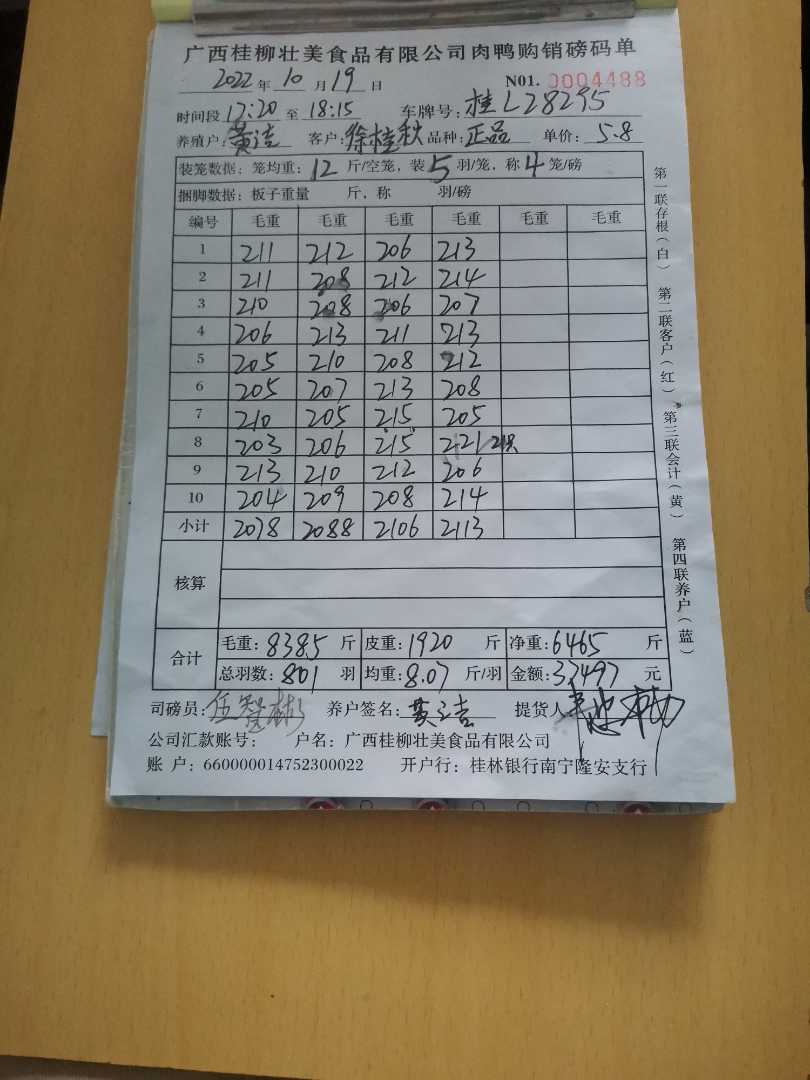 广西桂柳壮美食品有限公司肉鸭购销磅码单
2022年10月19日 N01. 0004488
时间段17:20至18:15 车牌号:桂L28295
养殖户:黄洁 客户:徐桂秋 品种:正品 单价:5.8
装笼数据:笼均重:12斤/空笼,装5羽/笼,称4笼/磅
捆脚数据:板子重量 斤,称 羽/磅
编号 毛重 毛重 毛重 毛重 毛重 毛重
1 211 212 206 213
2 211 208 212 214
3 210 208 206 207
4 206 213 211 213
5 205 210 208 212
6 205 207 213 208
7 210 205 215 205
8 203 206 215 221 21只
9 213 210 212 206
10 204 209 208 214
小计 2078 2088 2106 2113
核算
合计 毛重:8385斤 皮重:1920斤 净重:6465斤
总羽数:801羽 均重:8.07斤/羽 金额:37497元
司磅员: 养户签名: 提货人:
公司汇款账号: 户名:广西桂柳壮美食品有限公司
账 户:660000014752300022 开户行:桂林银行南宁隆安支行
第一联存根(白) 第二联客户(红) 第三联会计(黄) 第四联养户(蓝)